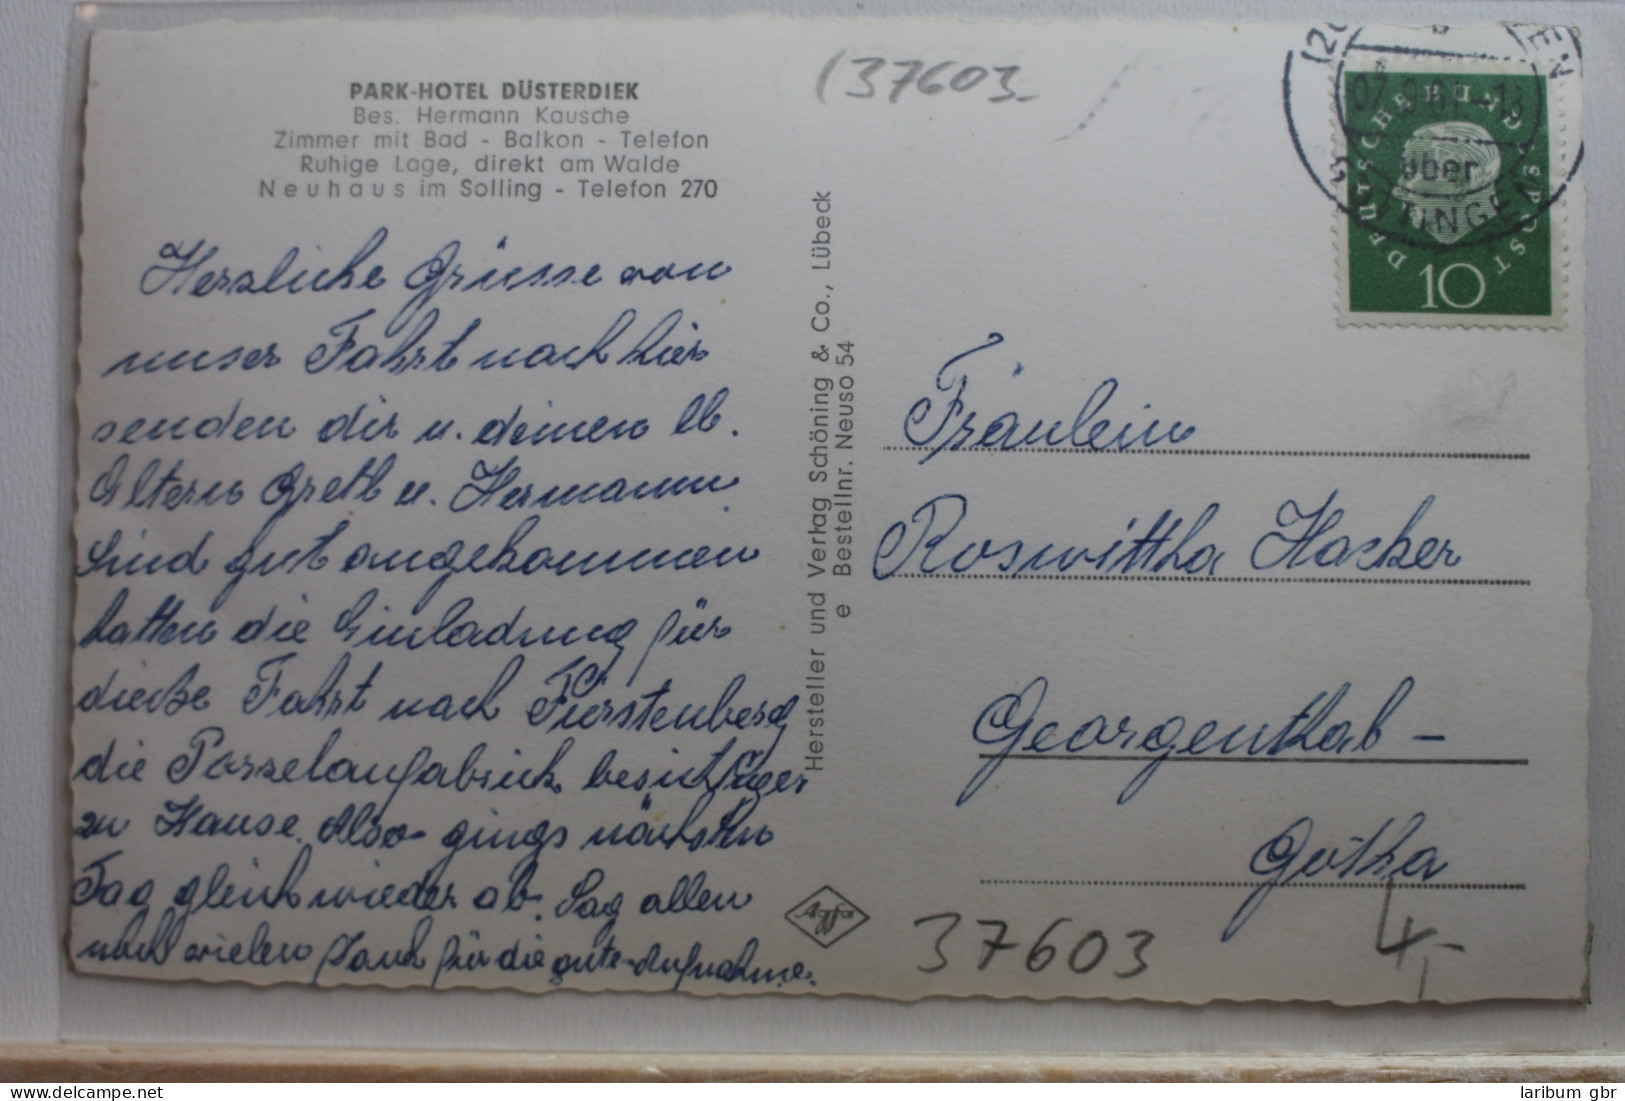 PARK-HOTEL DÜSTERDIEK
Bes. Hermann Kausche
Zimmer mit Bad - Balkon - Telefon
Ruhige Lage, direkt am Walde
Neuhaus im Solling - Telefon 270
Herzliche Grüsse von
unser Fahrt nach hier
senden dir u. deinen lb.
Eltern Gretl u. Hermann.
Sind gut angekommen
hatten die Einladung für
dieße Fahrt nach Fürstenberg
die Porzelanfabrick besichtiger
zu Hause. Also gings nächsten
Tag gleich wieder ab. Sag allen
noch vielen Dank für die gute Aufnahme.
Hersteller und Verlag Schöning & Co., Lübeck
e Bestellnr. Neuso 54
Agfa
(37603-
07.9.61-13
über
DEUTSCHE BUNDESPOST
10
Fräulein
Roswittha Hacker
Georgenthal-
Gotha
37603
4,-
delcampe.net
laribum gbr